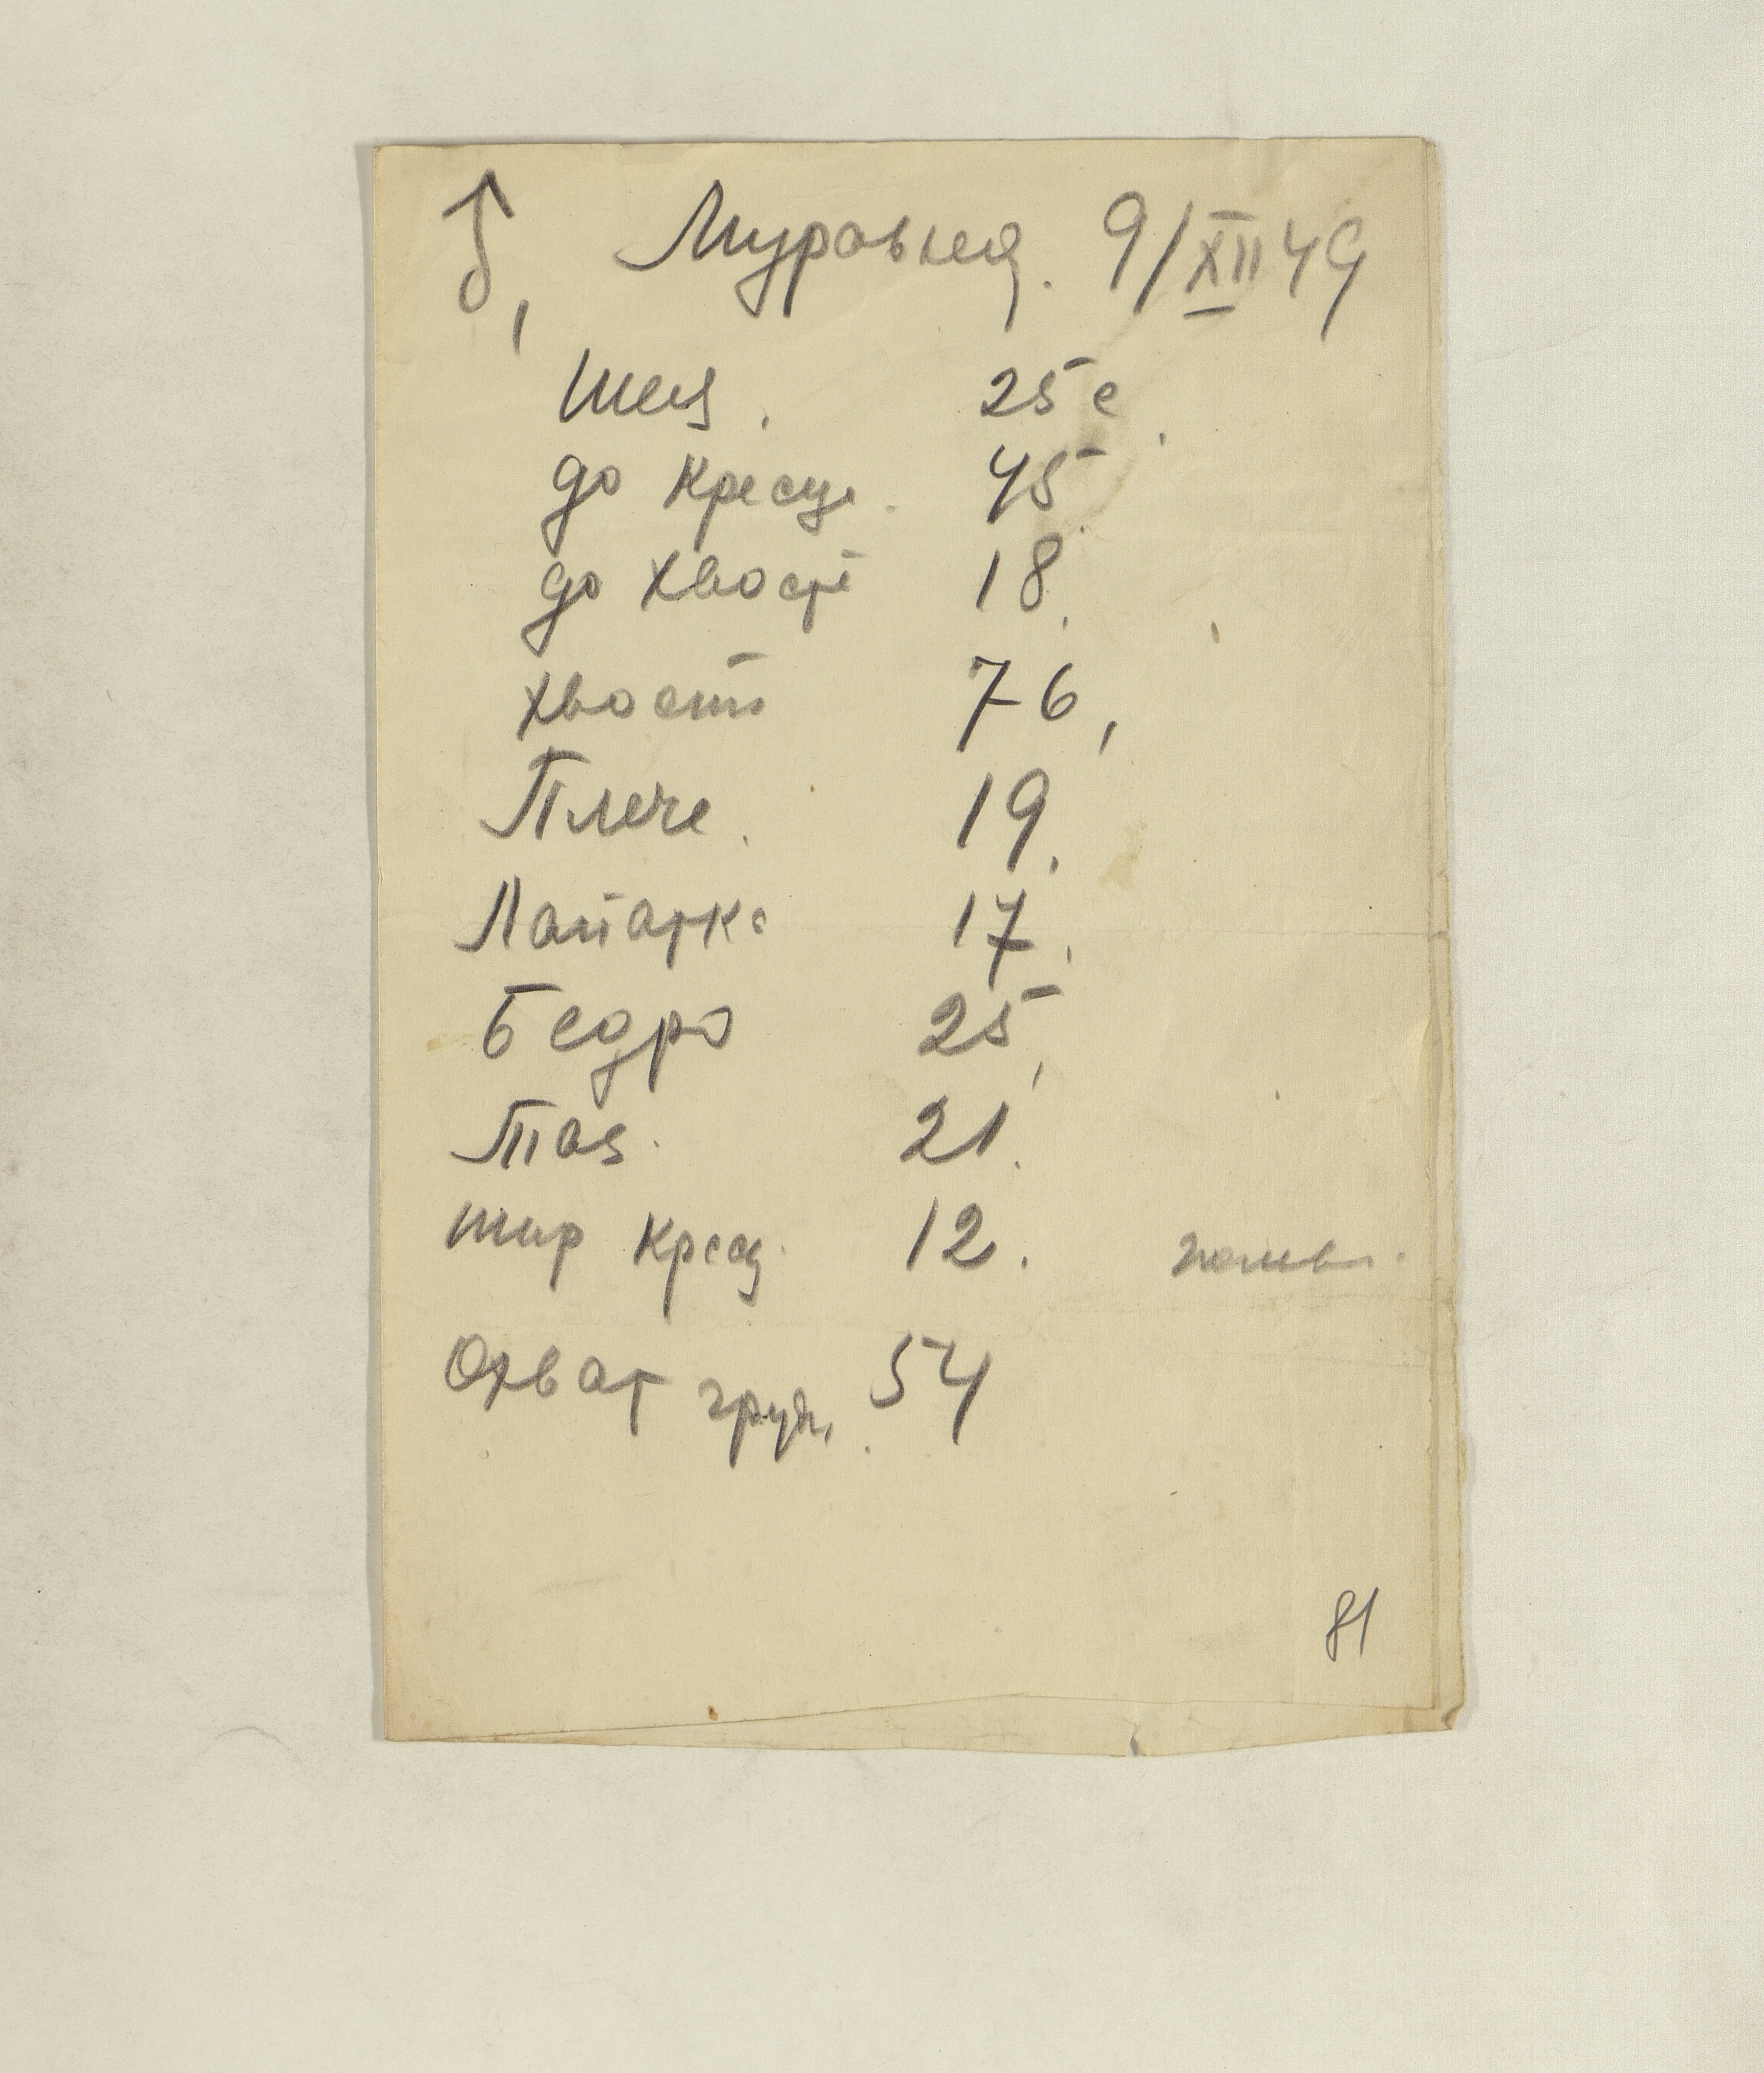 ♂, Муравьед. 9/XII 49
Шея. 25 с
до крестц. 45
до хвост 18.
хвост 76,
Плече. 19.
Лопатка 17.
Бедро 25,
Таз. 21.
шир крест. 12.
Охват груди. 54
81